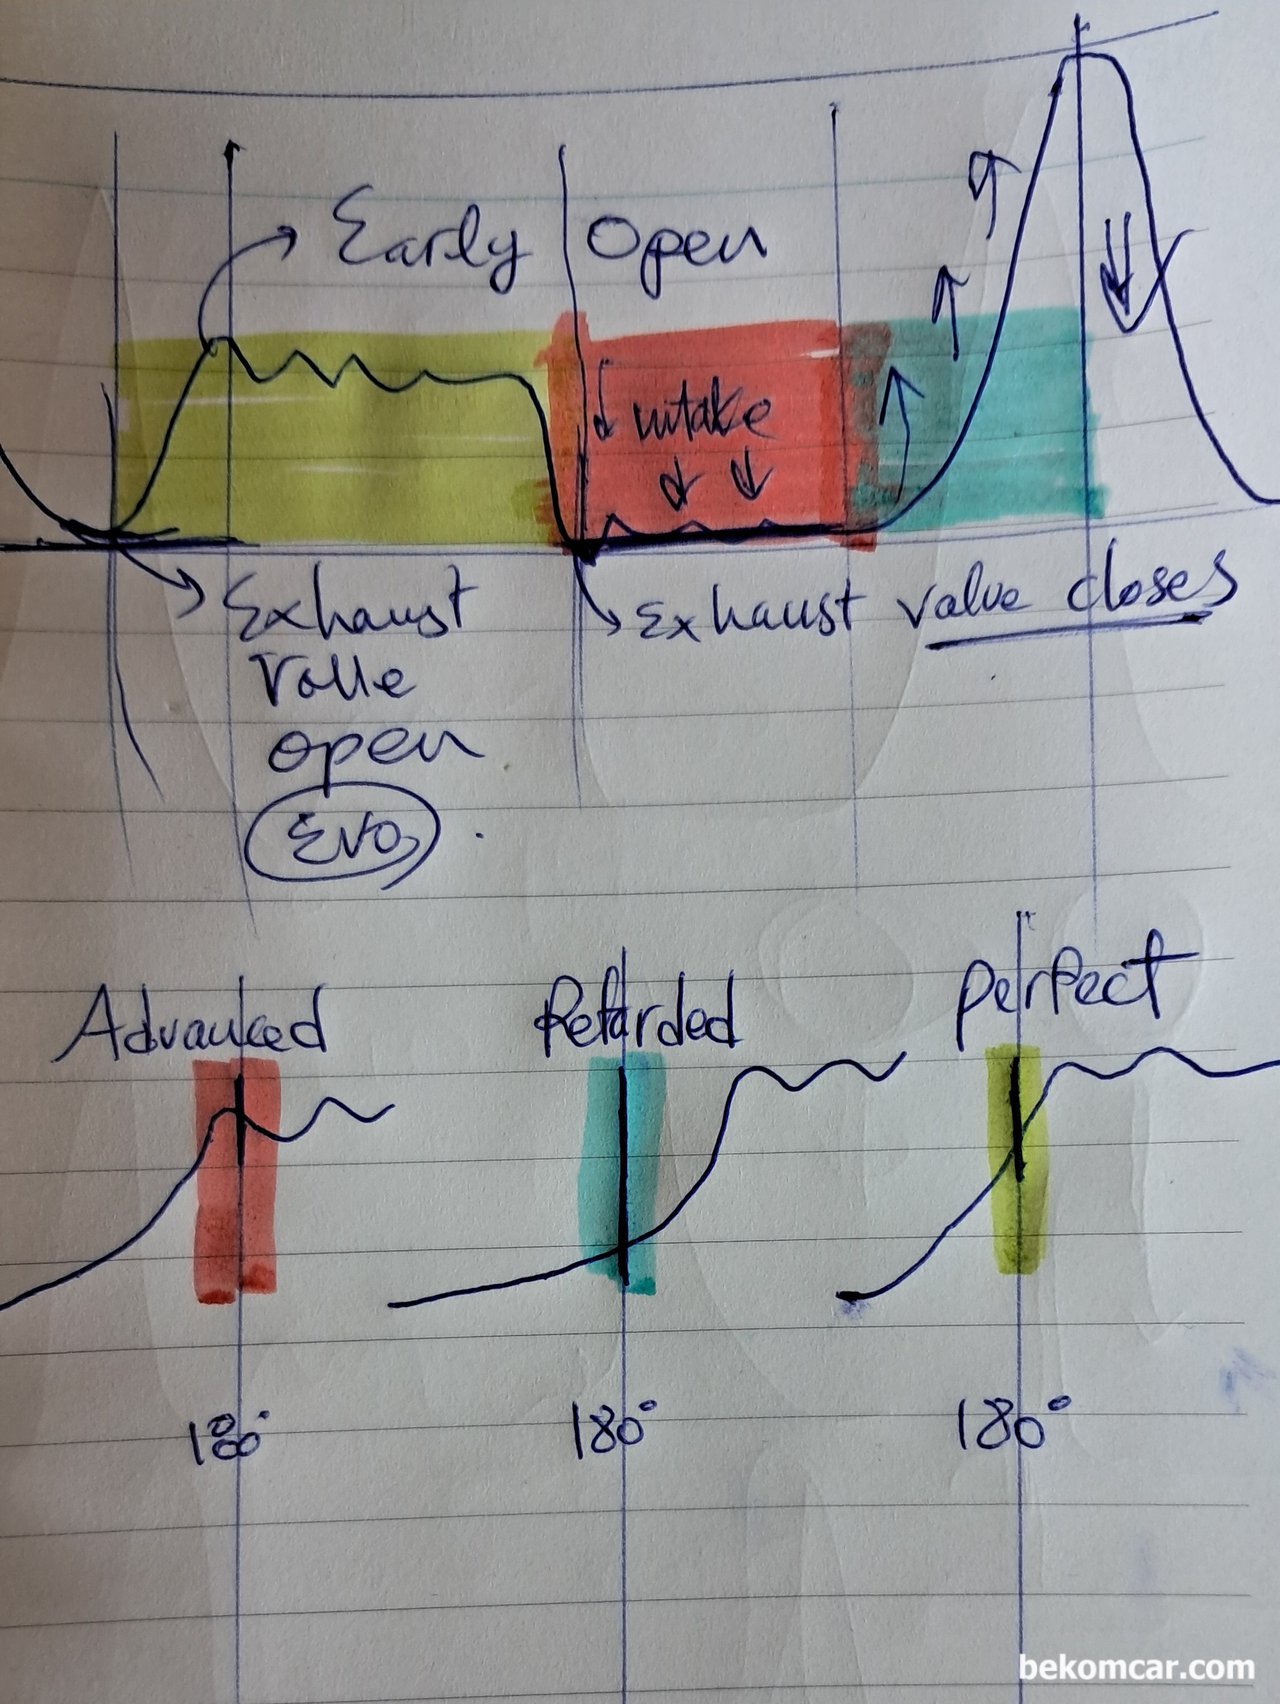 Early Open
intake
Exhaust
Valve
open
EVO
Exhaust value closes
Advanced
Retarded
perfect
180°
180°
180°
bekomcar.com